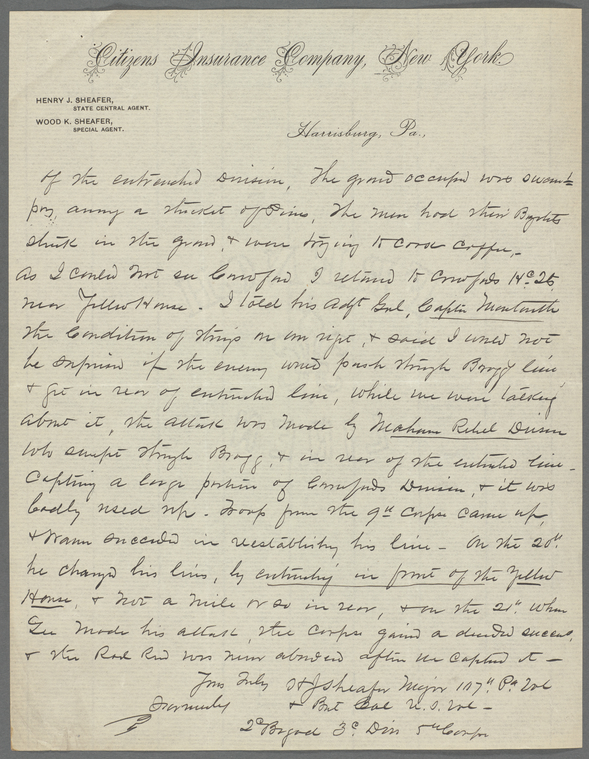 Citizens Insurance Company, New York.
HENRY J. SHEAFER,
STATE CENTRAL AGENT.
WOOD K. SHEAFER,
SPECIAL AGENT.
Harrisburg, Pa.,
of the entrenched Division, The ground occupied was swamp
a thicket of Pines, The men had their Bayonets
stuck in the ground, & were trying to cook coffee,-
As I could not see Crawford I returned to Crawfords Hd Qts
near Yellow House - I told his Adjt Genl, Captn Monteith
the condition of things on our right, & said I would not
be surprised if the enemy would push through Braggs line
& get in rear of entrenched line, while we were talking
about it, the attack was made by Mahone Rebel Division
who swept through Bragg, & in rear of the entrenched line -
Capturing a large portion of Crawfords Division, & it was
badly used up - Troops from the 9th Corps came up,
& Warren succeeded in reestablishing his line - On the 20th
he changed his lines, by entrenching in front of the Yellow
House, & not a mile or so in rear, & on the 21st when
Lee made his attack, the Corps gained a decided success,
& the Rail Road was never abandoned after we captured it -
Yours Truly H J Sheafer Major 107th Pa Vols
Formerly & Bvt Col U.S. Vols -
2d Brigade 3d Div 5th Corps